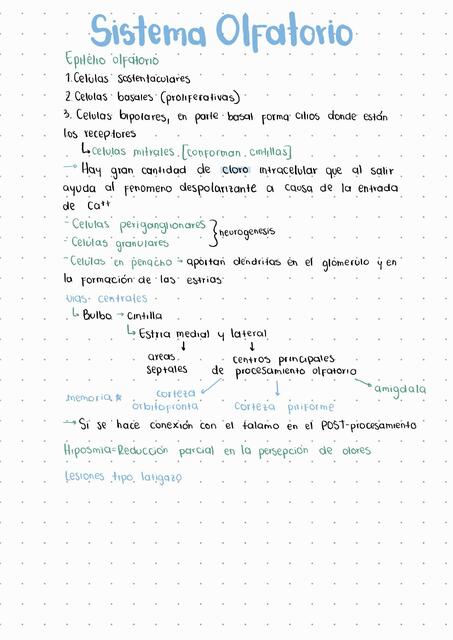 Sistema Olfatorio
Epitelio olfatorio
1. Celulas sostentaculares
2 Celulas basales (proliferativas)
3. Células bipolares, en parte basal forma cilios donde están
los receptores
↳ celulas mitrales [conforman cintillas]
→ Hay gran cantidad de cloro intracelular que al salir
ayuda al fenomeno despolarizante a causa de la entrada
de Ca++
- Celulas periganglionares
- Celulas granulares } neurogenesis
- Celulas en penacho → aportan dendritas en el glomerulo y en
la formación de las estrias
Vias centrales
↳ Bulbo → cintilla
↳ Estria medial y lateral
areas centros principales
septales de procesamiento olfatorio
memoria * corteza amigdala
orbitofronta corteza piriforme
→ Si se hace conexión con el talamo en el POST-procesamiento
Hiposmia=Reducción parcial en la persepción de olores
Lesiones tipo latigazo